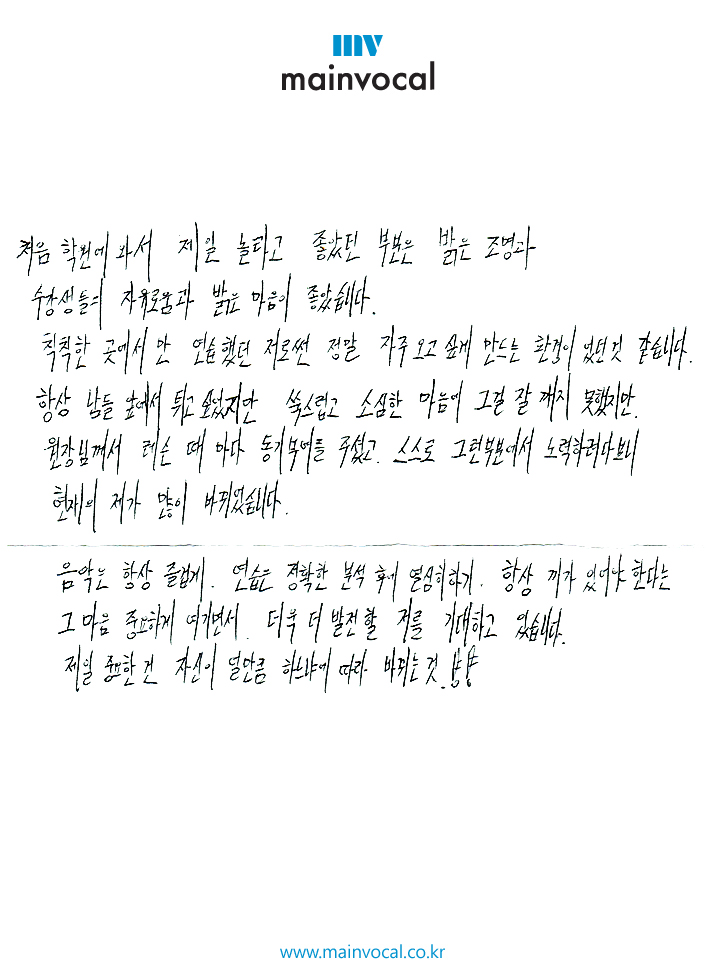 mv
mainvocal
처음 학원에 와서 제일 놀라고 좋았던 부분은 밝은 조명과
수강생들의 자유로움과 밝은 마음이 좋았습니다.
칙칙한 곳에서만 연습했던 저로썬 정말 자주 오고 싶게 만드는 환경이 있던것 같습니다.
항상 남들 앞에서 튀고 싶었지만 쑥스럽고 소심한 마음에 그걸 잘 깨지 못했지만.
원장님께서 레슨 때 마다 동기부여를 주셨고. 스스로 그런부분에서 노력하려다보니
현재의 제가 많이 바뀌었습니다.
음악는 항상 즐겁게. 연습은 정확한 분석 후에 열심히하기. 항상 끼가 있어야 한다는
그 마음 중요하게 여기면서. 더욱 더 발전할 저를 기대하고 있습니다.
제일 중요한 건 자신이 얼만큼 하느냐에 따라 바뀌는 것.
www.mainvocal.co.kr